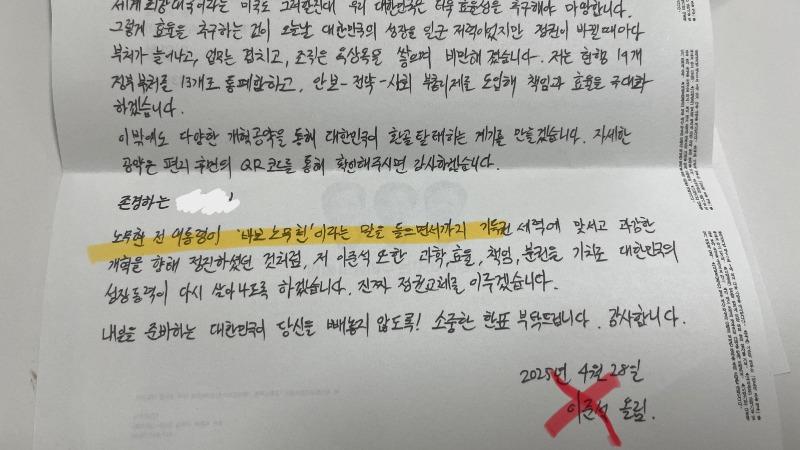 세계 최강대국이라는 미국도 그러할진대 우리 대한민국은 더욱 효율성을 추구해야 마땅합니다.
그렇게 효율을 추구하는 것이 오늘날 대한민국의 성장을 일군 저력이었지만 정권이 바뀔 때마다
부처가 늘어나고, 업무는 겹치고, 조직은 옥상옥을 쌓으며 비만해 졌습니다. 저는 현행 19개
정부부처를 13개로 통폐합하고, 안보-전략-사회 부총리제로 도입해 책임과 효율을 극대화
하겠습니다.
이 밖에도 다양한 개혁공약을 통해 대한민국이 환골탈태하는 계기를 만들겠습니다. 자세한
공약은 편지 후면의 QR코드를 통해 확인해주시면 감사하겠습니다.
존경하는
노무현 전 대통령이 '바보 노무현'이라는 말을 들으면서까지 기득권 세력에 맞서고 과감한
개혁을 향해 정진하셨던 것처럼, 저 이준석 또한 과학, 효율, 책임, 분권을 기치로 대한민국의
성장동력이 다시 살아나도록 하겠습니다. 진짜 정권교체를 이루겠습니다.
내일을 준비하는 대한민국이 당신을 빼놓지 않도록! 소중한 한표 부탁드립니다. 감사합니다.
2025년 4월 28일
이준석 올림.